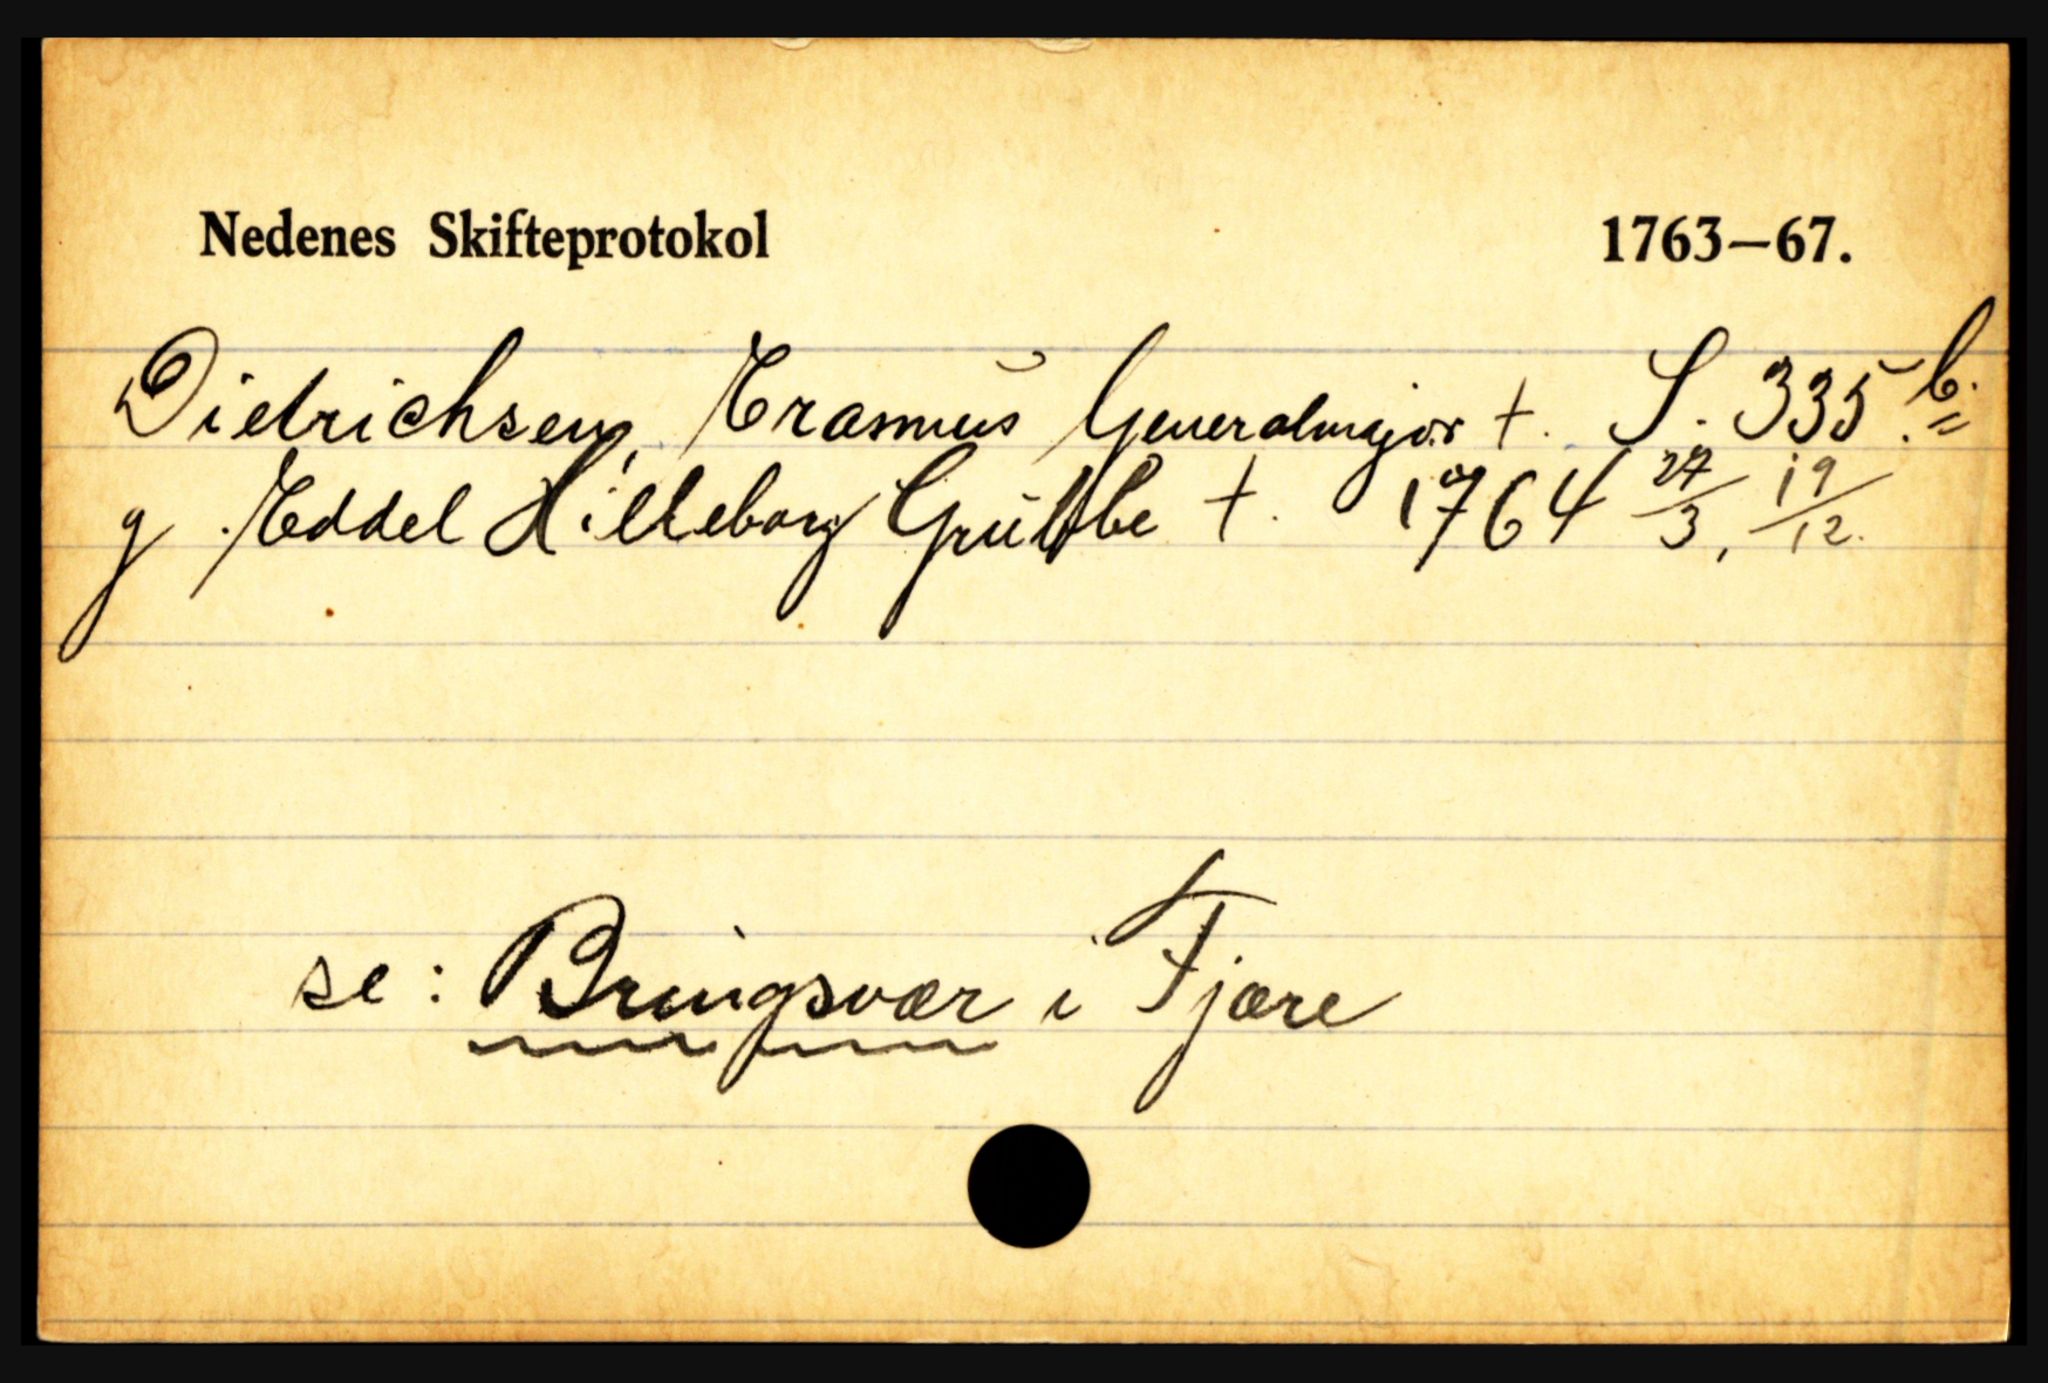 Nedenes Skifteprotokol 1763–67.
Dietrichsen, Erasmus Generalmajor †. S. 335.b.
g Eddel Hilleborg Grubbe †. 1764 27/3, 19/12.
se: Bringsvær i Fjære